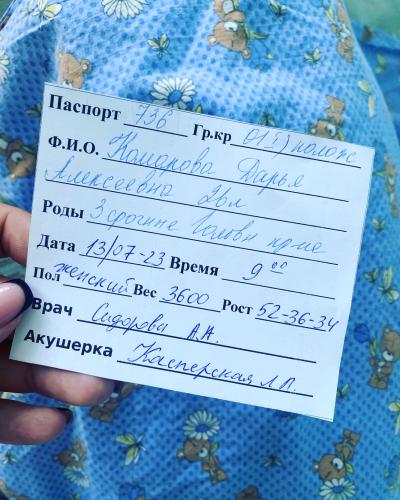 Паспорт 736 Гр.кр 0(I) полож
Ф.И.О. Комарова Дарья
Алексеевна 26л
Роды 3 срочные головн пр-ие
Дата 13/07-23 Время 9 00
Пол женский Вес 3600 Рост 52-36-34
Врач Сидорова А.А.
Акушерка Касперская Л.П.